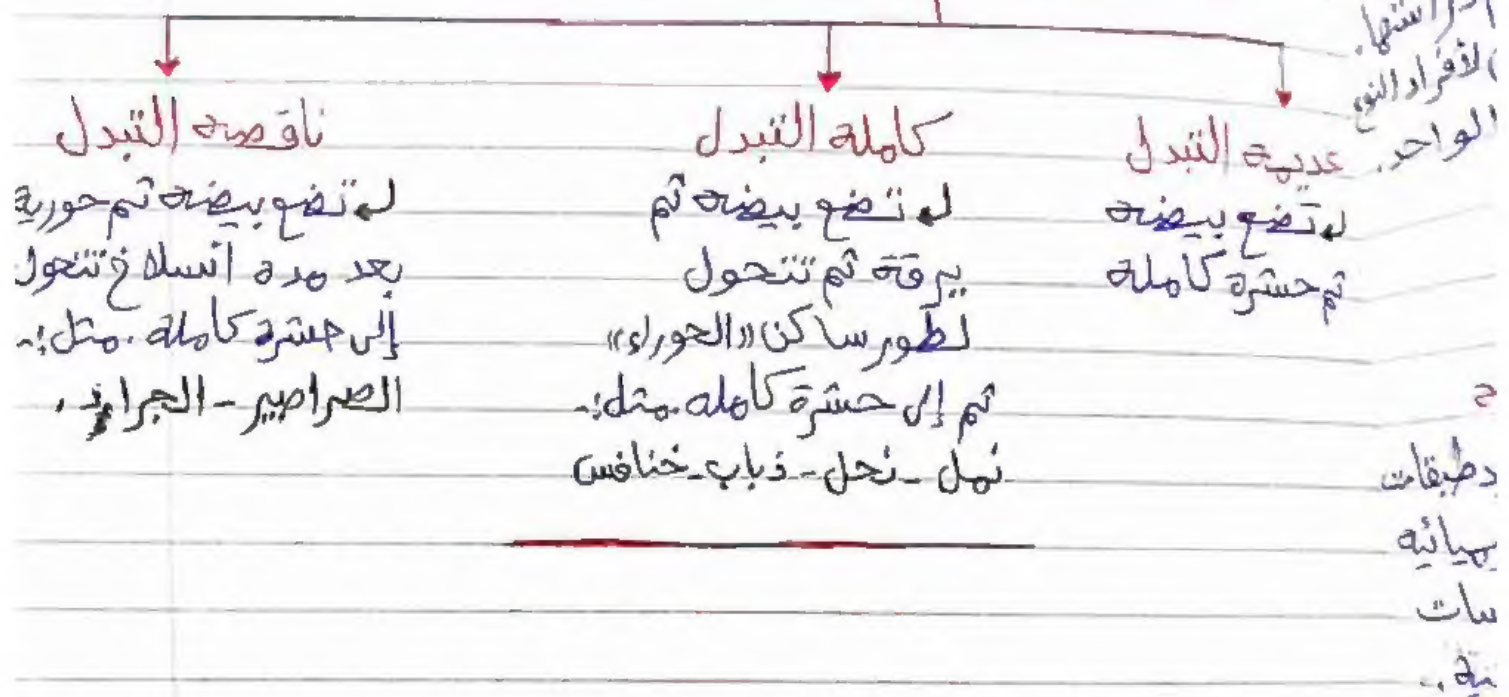 لأفراد النوع
الواحد.
عديمة التبدل
تضع بيضه
ثم حشرة كاملة
كاملة التبدل
تضع بيضه ثم
يرقة ثم تتحول
لطور ساكن "الحوراء"
ثم إلى حشرة كامله. مثل:-
نمل - نحل - ذباب - خنافس
ناقصه التبدل
تضع بيضه ثم حورية
بعد مدة انسلاخ تتحول
إلى حشرة كامله. مثل:-
الصراصير - الجراد.